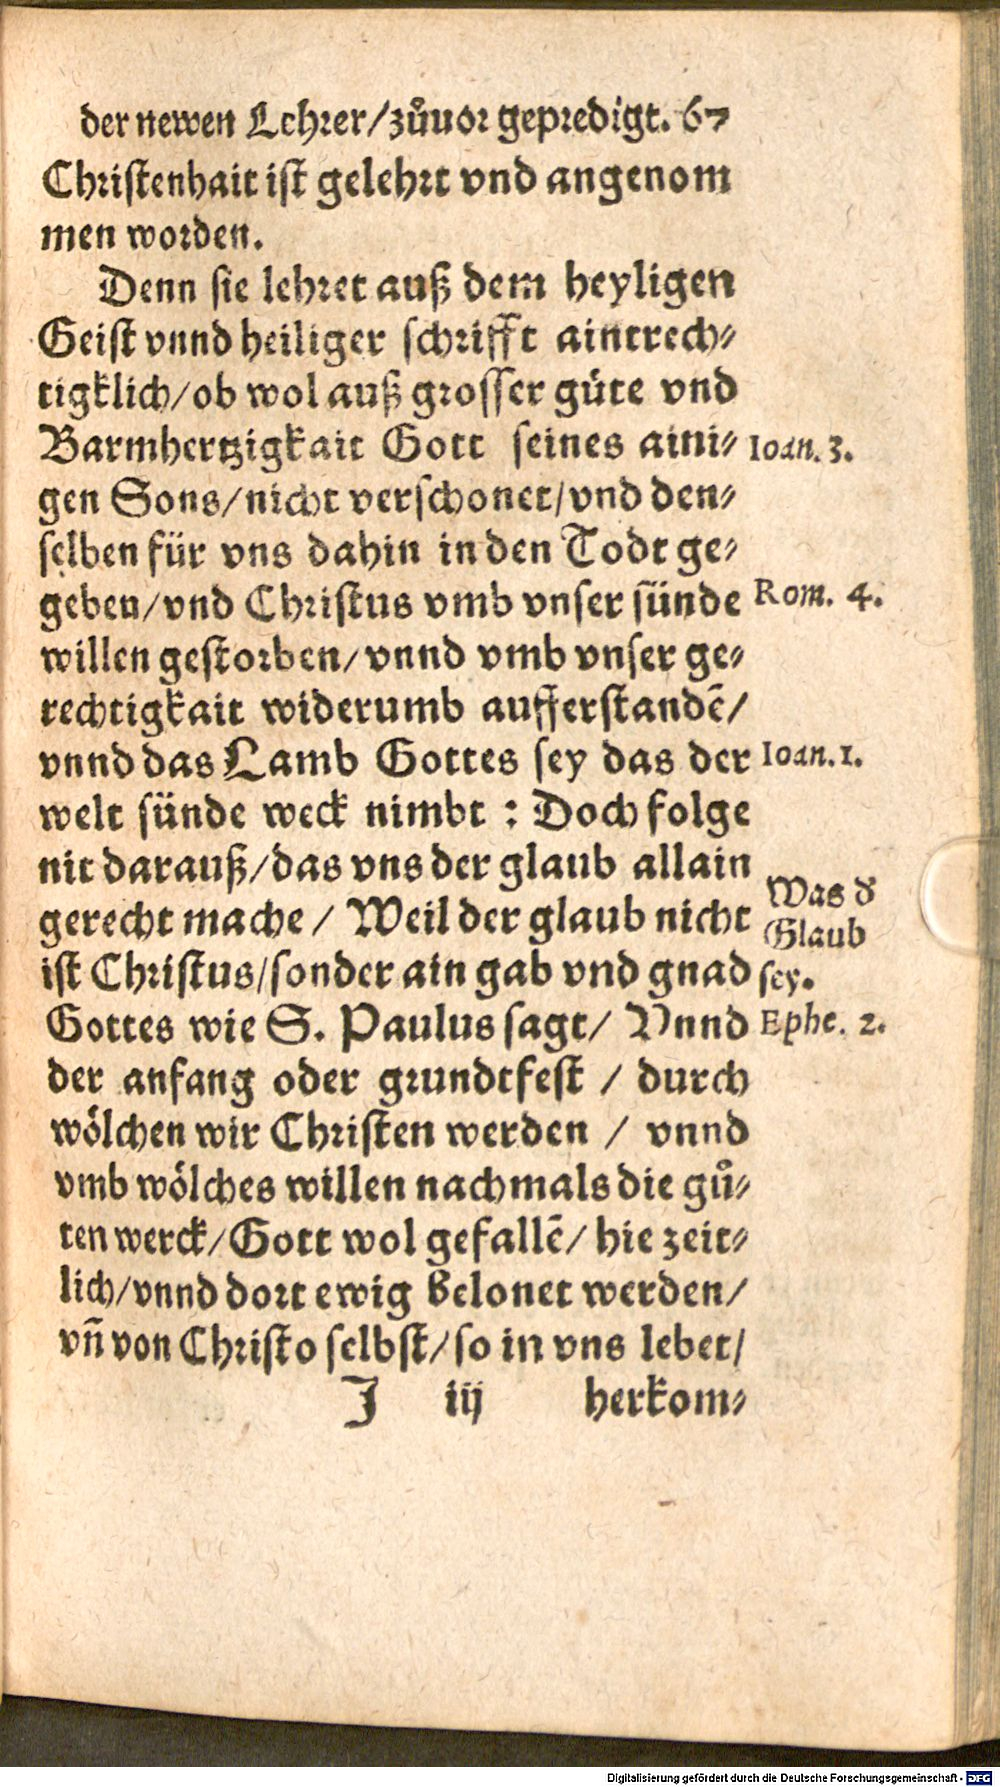 der newen Lehrer/zůuor gepredigt. 67
Christenhait ist gelehrt vnd angenom
men worden.
Denn sie lehret auß dem heyligen
Geist vnnd heiliger schrifft aintrech-
tigklich/ob wol auß grosser güte vnd
Barmhertzigkait Gott seines aini-
Ioan. 3.
gen Sons/nicht verschonet/vnd den-
selben für vns dahin in den Todt ge-
geben/vnd Christus vmb vnser sünde
Rom. 4.
willen gestorben/vnnd vmb vnser ge-
rechtigkait widerumb aufferstandẽ/
vnnd das Lamb Gottes sey das der
Ioan. 1.
welt sünde weck nimbt : Doch folge
nit darauß/das vns der glaub allain
gerecht mache / Weil der glaub nicht
Was d
Glaub
sey.
ist Christus/sonder ain gab vnd gnad
Gottes wie S. Paulus sagt/ Vnnd
Ephe. 2.
der anfang oder grundtfest / durch
wölchen wir Christen werden / vnnd
vmb wölches willen nachmals die gů-
ten werck/Gott wol gefallẽ/ hie zeit-
lich/vnnd dort ewig belonet werden/
vñ von Christo selbst/so in vns lebet/
J iij herkom-
Digitalisierung gefördert durch die Deutsche Forschungsgemeinschaft - DFG